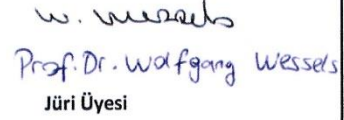 W. Wessels
Prof. Dr. Wolfgang Wessels
Jüri Üyesi